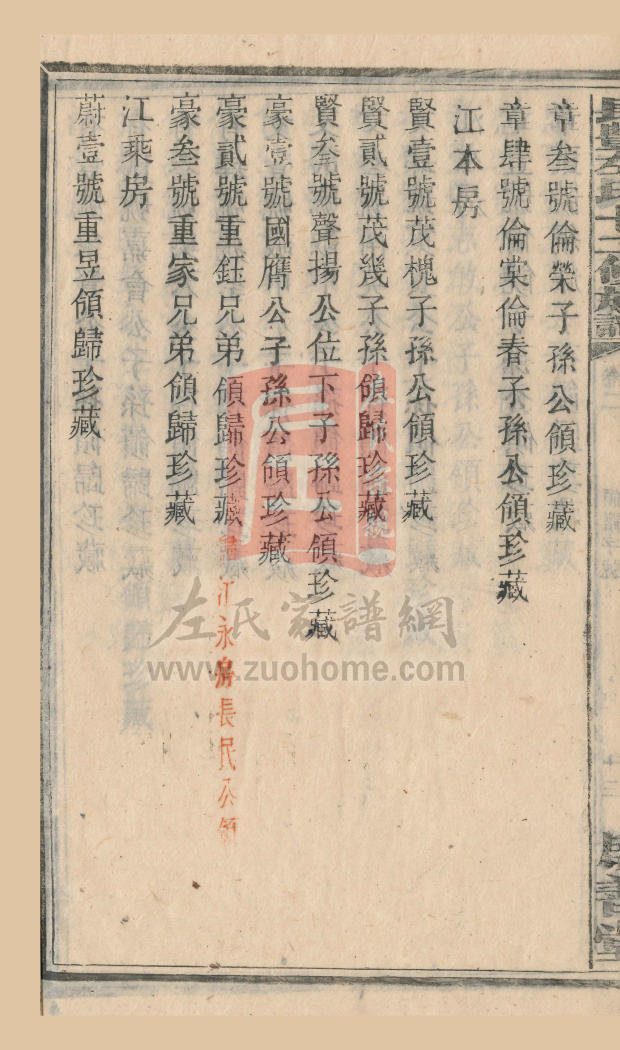 章叁號倫榮子孫公領珍藏
章肆號倫棠倫春子孫公領珍藏
江本房
賢壹號茂槐子孫公領珍藏
賢貳號茂幾子孫領歸珍藏
賢叁號聲揚公位下子孫公領珍藏
豪壹號國膺公子孫公領珍藏
豪貳號重鈺兄弟領歸珍藏
江永房長民公領
豪叁號重家兄弟領歸珍藏
江乘房
蔚壹號重昱領歸珍藏
左氏家譜網
www.zuohome.com